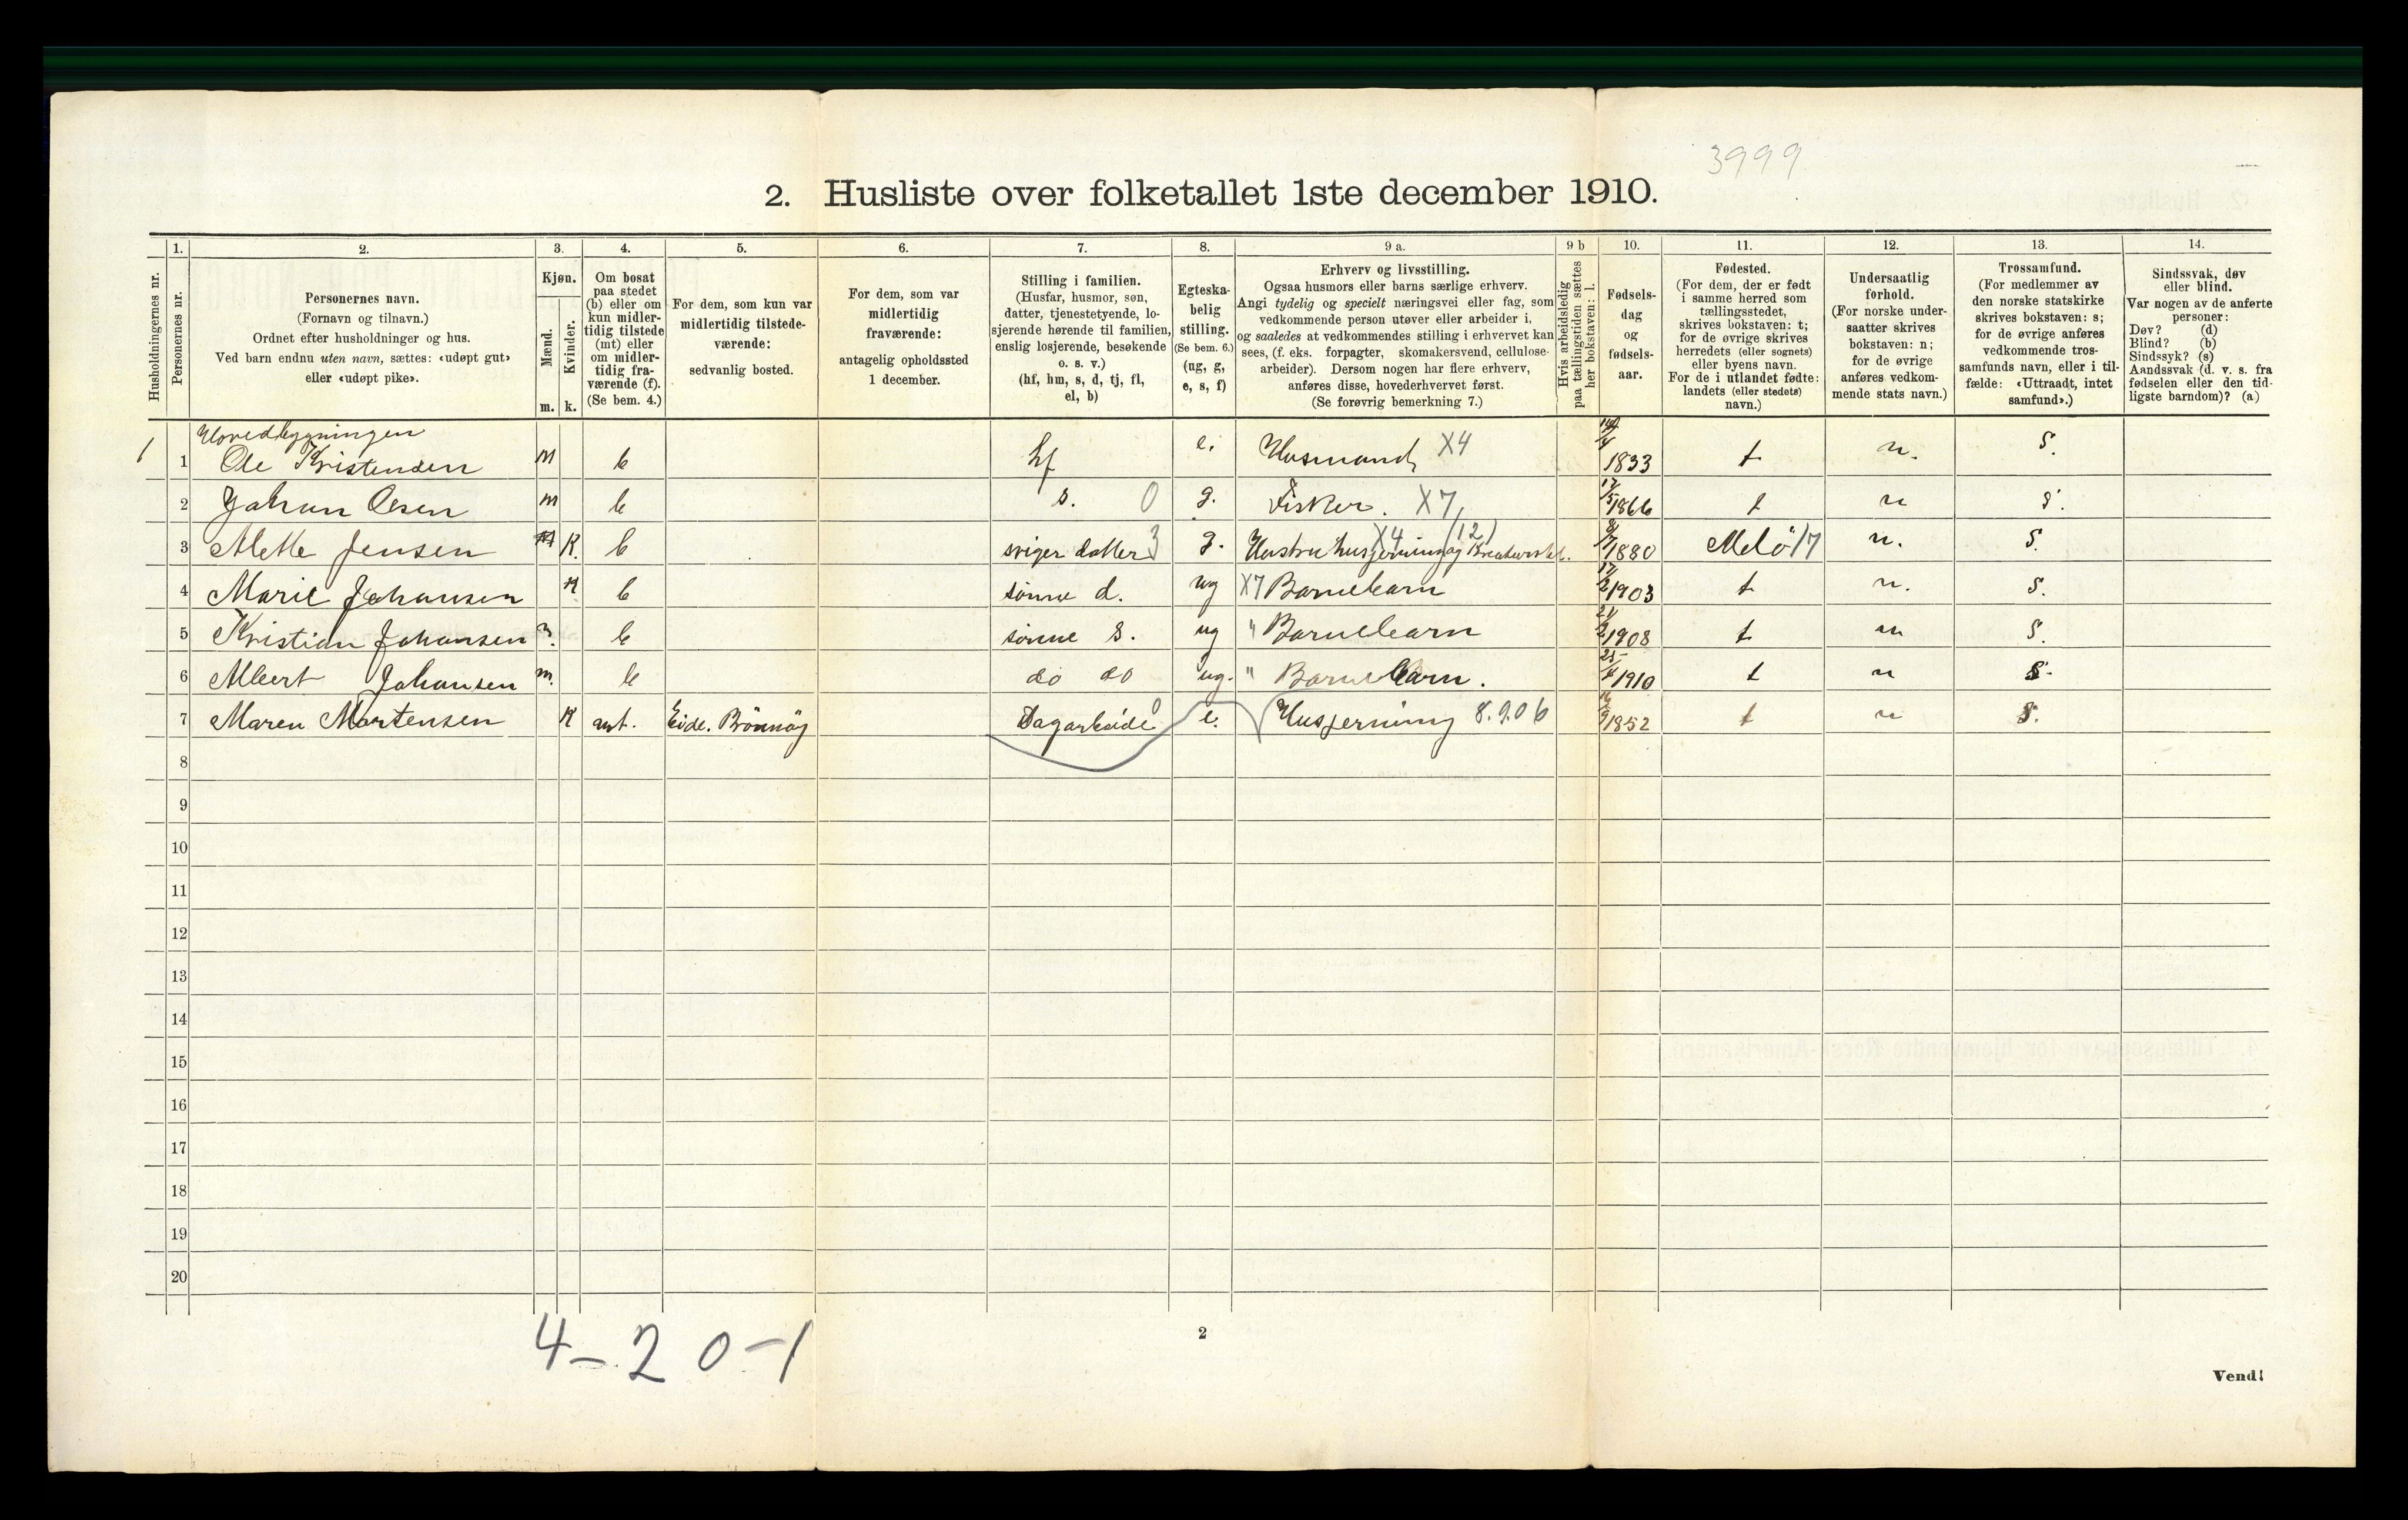 3999
2. Husliste over folketallet 1ste december 1910.
Husholdningernes nr.
1.
Personernes nr.
2.
Personernes navn.
(Fornavn og tilnavn.)
Ordnet efter husholdninger og hus.
Ved barn endnu uten navn, sættes: «udøpt gut»
eller «udøpt pike».
3.
Kjøn.
Mænd.
Kvinder.
m. k.
4.
Om bosat
paa stedet
(b) eller om
kun midler-
tidig tilstede
(mt) eller
om midler-
tidig fra-
værende (f).
(Se bem. 4.)
5.
For dem, som kun var
midlertidig tilstede-
værende:
sedvanlig bosted.
6.
For dem, som var
midlertidig
fraværende:
antagelig opholdssted
1 december.
7.
Stilling i familien.
(Husfar, husmor, søn,
datter, tjenestetyende, lo-
sjerende hørende til familien,
enslig losjerende, besøkende
o. s. v.)
(hf, hm, s, d, tj, fl,
el, b)
8.
Egteska-
belig
stilling.
(Se bem. 6.)
(ug, g,
e, s, f)
9 a.
Erhverv og livsstilling.
Ogsaa husmors eller barns særlige erhverv.
Angi tydelig og specielt næringsvei eller fag, som
vedkommende person utøver eller arbeider i,
og saaledes at vedkommendes stilling i erhvervet kan
sees, (f. eks. forpagter, skomakersvend, cellulose-
arbeider). Dersom nogen har flere erhverv,
anføres disse, hovederhvervet først.
(Se forøvrig bemerkning 7.)
9 b
Hvis arbeidsledig
paa tællingstiden sættes
her bokstaven: l.
10.
Fødsels-
dag
og
fødsels-
aar.
11.
Fødested.
(For dem, der er født
i samme herred som
tællingsstedet,
skrives bokstaven: t;
for de øvrige skrives
herredets (eller sognets)
eller byens navn.
For de i utlandet fødte:
landets (eller stedets)
navn.)
12.
Undersaatlig
forhold.
(For norske under-
saatter skrives
bokstaven: n;
for de øvrige
anføres vedkom-
mende stats navn.)
13.
Trossamfund.
(For medlemmer av
den norske statskirke
skrives bokstaven: s;
for de øvrige anføres
vedkommende tros-
samfunds navn, eller i til-
fælde: «Uttraadt, intet
samfund».)
14.
Sindssvak, døv
eller blind.
Var nogen av de anførte
personer:
Døv? (d)
Blind? (b)
Sindssyk? (s)
Aandssvak (d. v. s. fra
fødselen eller den tid-
ligste barndom)? (a)
Hovedbygningen
1 1 Ole Kristensen m b hf e. Husmand X4 1833 t n. S.
2 Johan Olsen m b s. 0 g. Fisker. X7, 17/5 1866 t n S.
3 Mette Jensen K. b sviger datter 3 g. Hustru husgjerning og X4 (12) 1880 Melö 17 n. S.
4 Marie Johansen K b sønne d. ug X7 Barnebarn 17/2 1903 t n. S.
5 Kristian Johansen m. b sønne s. ug " Barnebarn 21/2 1908 t n S.
6 Albert Johansen m. b do do ug. " Barnebarn. 1910 t n S.
7 Maren Mortensen K mt. Eide. Brönnöy e. Husgerning 8.9.06 1852 t n S.
8
9
10
11
12
13
14
15
16
17
18
19
20
4 - 2 0 - 1
2
Vend!